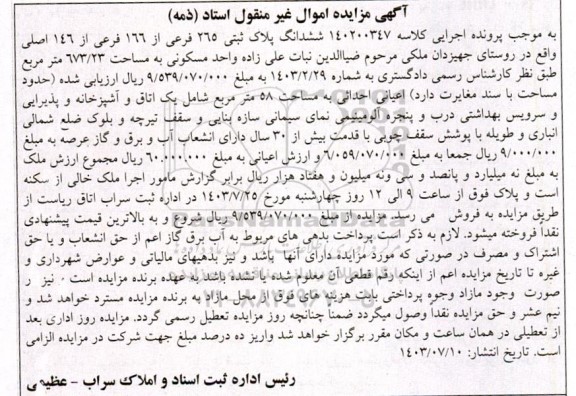 آگهی مزایده اموال غیر منقول اسناد (ذمه)
به موجب پرونده اجرایی کلاسه ۱۴۰۲۰۰۳۴۷ ششدانگ پلاک ثبتی ۲۶۵ فرعی از ۱۶۶ فرعی از ۱۴۶ اصلی
واقع در روستای جهیزدان ملکی مرحوم ضیاالدین نبات علی زاده واحد مسکونی به مساحت ۶۷۳/۲۳ متر مربع
طبق نظر کارشناس رسمی دادگستری به شماره ۱۴۰۳/۲/۲۹ به مبلغ ۹/۵۳۹/۰۷۰/۰۰۰ ریال ارزیابی شده (حدود
مساحت با سند مغایرت دارد) اعیانی احداثی به مساحت ۵۸ متر مربع شامل یک اتاق و آشپزخانه و پذیرایی
و سرویس بهداشتی درب و پنجره آلومینیمی نمای سیمانی سازه بنایی و سقف تیرچه و بلوک ضلع شمالی
انباری و طویله با پوشش سقف چوبی با قدمت بیش از ۳۰ سال دارای انشعاب آب و برق و گاز عرصه به مبلغ
۹/۰۰۰/۰۰۰ ریال جمعا به مبلغ ۶/۰۵۹/۰۷۰/۰۰۰ و ارزش اعیانی به مبلغ ۶۰.۰۰۰.۰۰۰ ریال مجموع ارزش ملک
به مبلغ نه میلیارد و پانصد و سی ونه میلیون و هفتاد هزار ریال برابر گزارش مامور اجرا ملک خالی از سکنه
است و پلاک فوق از ساعت ۹ الی ۱۲ روز چهارشنبه مورخ ۱۴۰۳/۷/۲۵ در اداره ثبت سراب اتاق ریاست از
طریق مزایده به فروش می رسد. مزایده از مبلغ ۹/۵۳۹/۰۷۰/۰۰۰ ریال شروع و به بالاترین قیمت پیشنهادی
نقداً فروخته میشود. لازم به ذکر است پرداخت بدهی های مربوط به آب برق گاز اعم از حق انشعاب و یا حق
اشتراک و مصرف در صورتی که مورد مزایده دارای آنها باشد و نیز بدهیهای مالیاتی و عوارض شهرداری و
غیره تا تاریخ مزایده اعم از اینکه رقم قطعی آن معلوم شده یا نشده باشد به عهده برنده مزایده است نیز ر
صورت وجود مازاد وجوه پرداختی بابت هزینه های فوق از محل مازاد به برنده مزایده مسترد خواهد شد و
نیم عشر و حق مزایده نقداً وصول میگردد ضمناً چنانچه روز مزایده تعطیل رسمی گردد. مزایده روز اداری بعد
از تعطیلی در همان ساعت و مکان مقرر برگزار خواهد شد واریز ده درصد مبلغ جهت شرکت در مزایده الزامی
است. تاریخ انتشار: ۱۴۰۳/۰۷/۱۰
رئیس اداره ثبت اسناد و املاک سراب - عظیمی
ParsNamadData